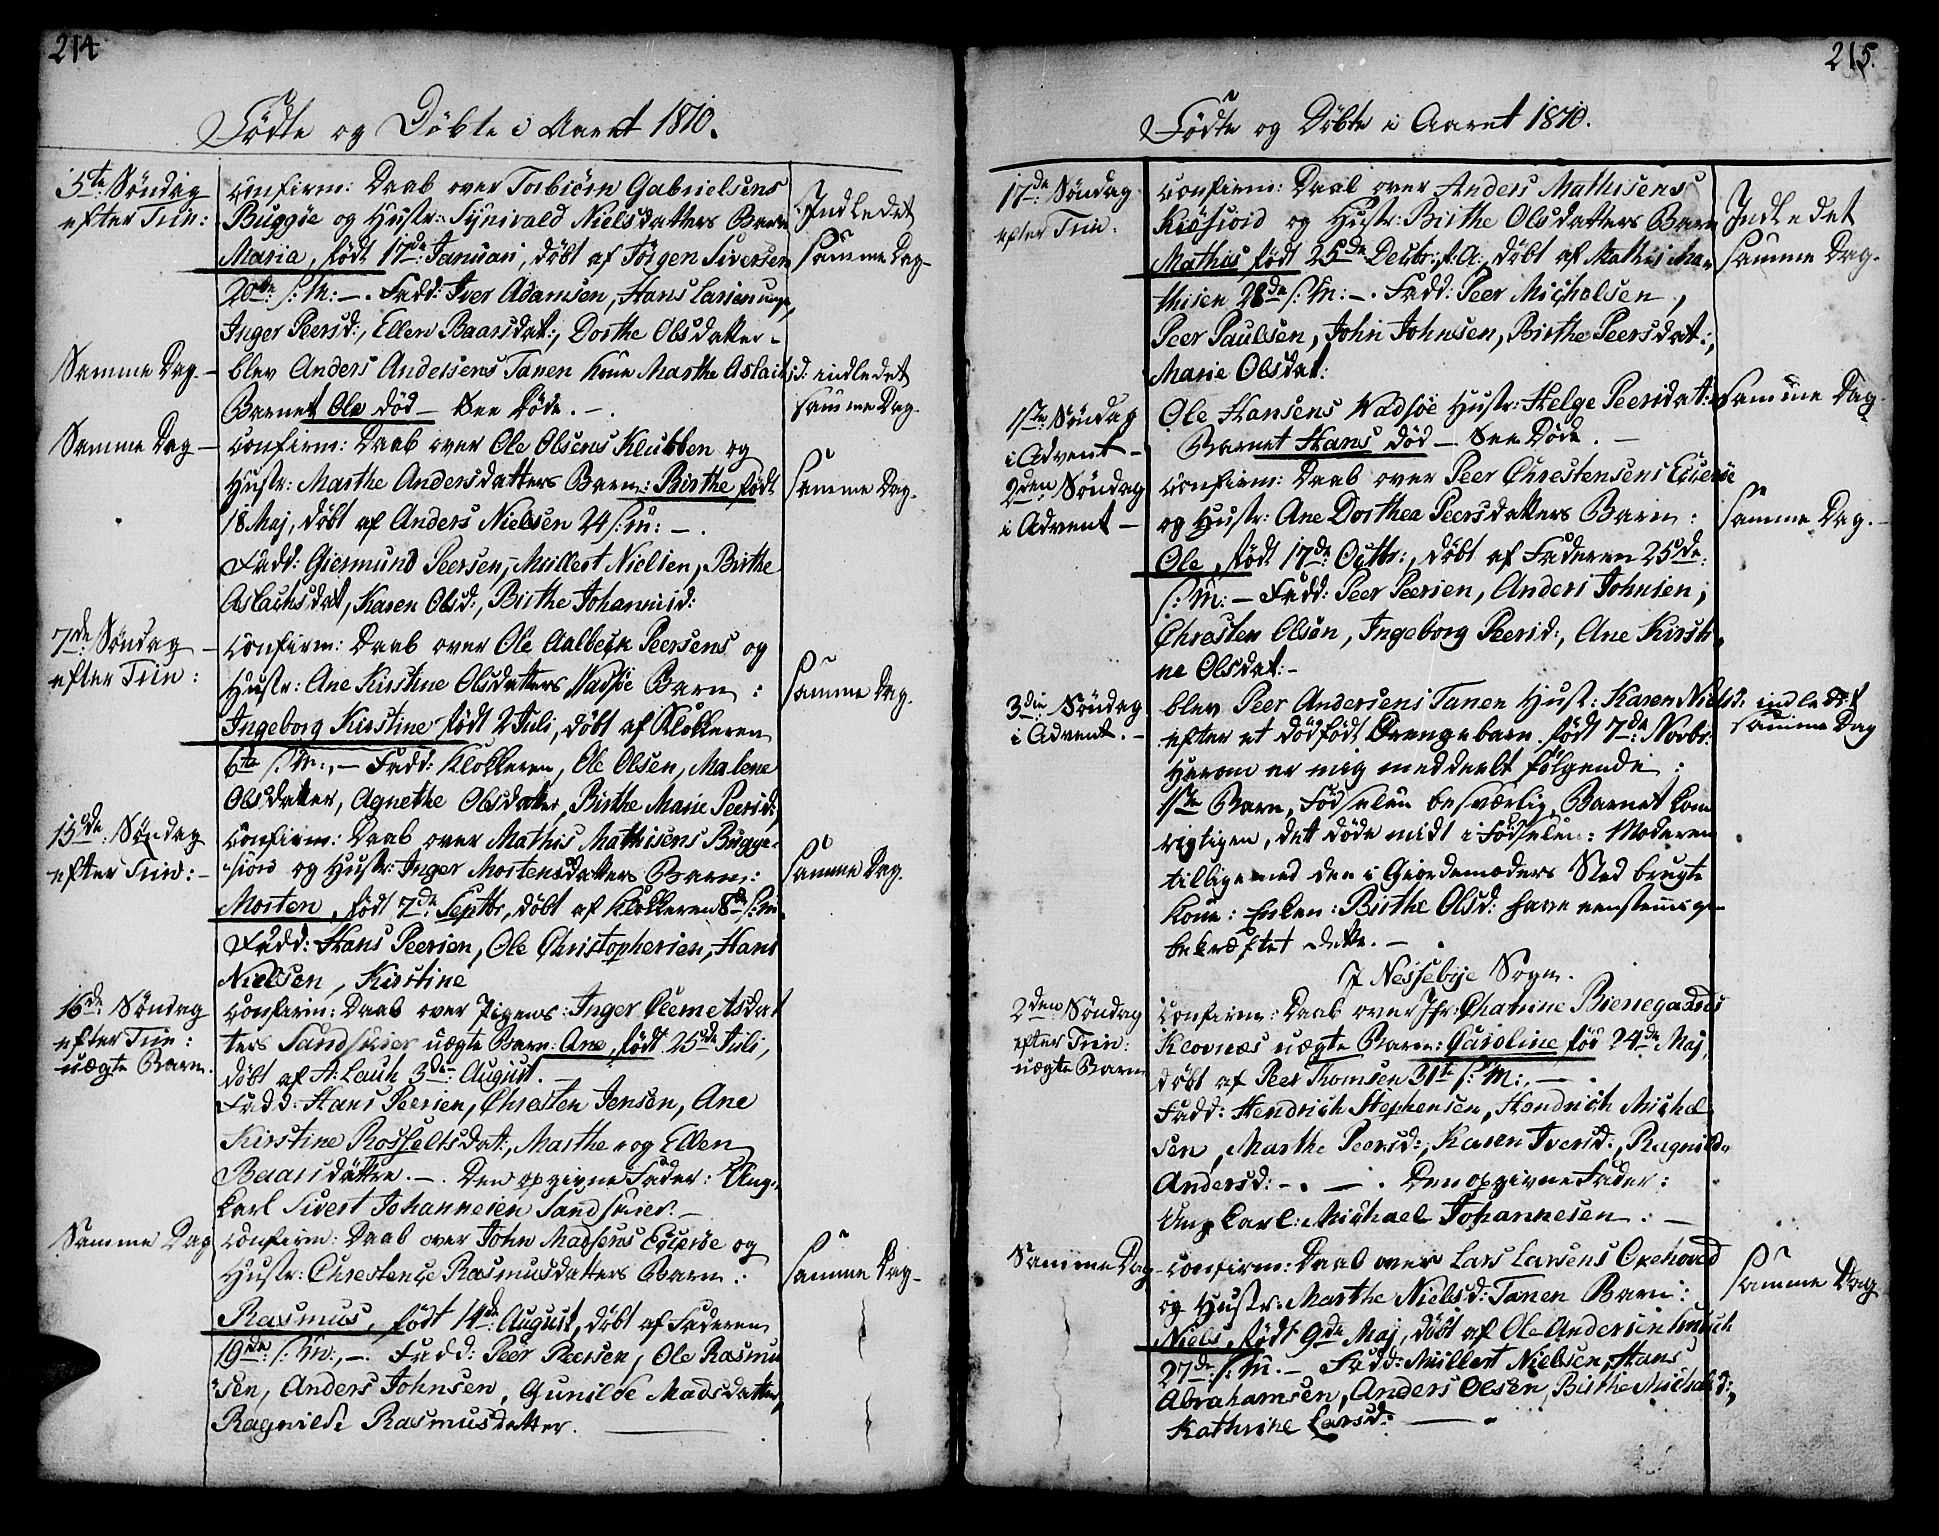 214
Födte og Döbte i Aaret 1810.
5te Söndag
efter Trin:
Confirm: Daab over Torbiörn Gabrielsens
Buggöe og Hustr: Synivald Nielsdatters Barn
Maria, födt 17de Januari, döbt af Jörgen Siversen
20de s: M: —. Fadd: Iver Adamsen, Hans Larsen unge,
Inger Peersd:, Ellen Baarsdat:, Dorthe Olsdatter –
Indledet
samme Dag –
Samme Dag. –
blev Anders Andersens Tanen Kone Marthe Aslacksd: indledet
Barnet Ole död – See Döde. –.
samme Dag.
Samme Dag –
Confirm: Daab over Ole Olsens Klubben og
Hustr: Marthe Andersdatters Barn: Birthe födt
18 Maj, döbt af Anders Nielsen 24 s: M: –.
Fadd: Giermund Peersen, Mullert Nielsen, Birthe
Aslachsdat, Karen Olsd:, Birthe Johannisd:
samme Dag.
7de Söndag –
efter Trin:
Confirm: Daab over Ole Aalbech Peersens og
Hustr: Ane Kirstine Olsdatters Vadsöe Barn :
Ingeborg Kirstine födt 2 Juli, döbt af Klokkeren
6te s: M:, – Fadd: Klokkeren, Ole Olsen, Malene
Olsdatter, Agnethe Olsdatter, Birthe Marie Peersd:,
samme Dag.
15de Söndag
efter Trin: –
Confirm: Daab over Mathis Mathisens Bugge-
fiord og Hustr: Inger Mortensdatters Barn:
Morten, födt 7de Septbr, döbt af Klokkeren 8de s: M.
Fadd: Hans Peersen, Ole Christophersen, Hans
Nielsen, Kirstine
samme Dag.
16de Söndag
efter Trin:
uægte Barn.
Confirm: Daab over Pigens Inger Clemetsdat
ters Sandskier uægte Barn: Ane, födt 25de Juli,
döbt af A: Lauh 3die August. –
Fadd: Hans Peersen, Chresten Jensen, Ane
Kirstine Rosseltsdat:, Marthe og Ellen
Baarsdöttre. –. Den opgivne Fader: Ung-
karl Sivert Johannesen Sandskier. –
Samme Dag
Confirm: Daab over John Madsens Eqveröe og
Hustr: Chrestense Rasmusdatters Barn :
Rasmus, födt 14de August, döbt af Faderen
19de s: M:, –. Fadd: Peer Peersen, Ole Rasmu
sen, Anders Johnsen, Gunilde Madsdatter,
Ragnilde Rasmusdatter.
samme Dag –
215.
Födte og Döbte i Aaret 1810.
17de Söndag
efter Trin:
Confirm: Daab over Anders Mathisens
Kiöfiord og Hustr: Birthe Olsdatters Barn
Mathis födt 25de Decbr: f: A:, döbt af Mathis Ma-
thisen 28de s: M: –. Fadd: Peer Michelsen,
Peer Paulsen, John Johnsen, Birthe Peersdat:,
Marie Olsdat:
Indledet
samme Dag.
1ste Söndag
i Advent –
Ole Hansens Vadsöe Hustr: Helge Peersdat:
Barnet Hans död – See Döde. –
samme Dag
2den Söndag
i Advent –
Confirm: Daab over Peer Chrestensens Eqveröe
og Hustr: Ane Dorthea Peersdatters Barn :
Ole, födt 17de Octbr:, döbt af Faderen 25de
s: M: – Fadd: Peer Peersen, Anders Johnsen,
Chresten Olsen, Ingeborg Peersd:, Ane Kirsti
ne Olsdat: –
samme Dag. –
3die Söndag
i Advent. –
blev Peer Andersens Tanen Hust: Karen Nielsd: indledet
efter et dödfödt Drengebarn födt 7de Novbr.
samme Dag
Herom er mig meddeelt fölgende :
1ste Barn, Födselen besværlig, Barnet kom
rigtigen, det döde midt i Födselen: Moderen
tilligemed den i Giordemoders Sted brugte
Kone: Enken: Birthe Olsd: have eenstemmigen
bekræftet dette. –
I Nessebye Sogn.
2den Söndag
efter Trin:
uægte Barn
Confirm: Daab over Jfr: Chatrine Bieregaards
Klovnæs uægte Barn: Caroline föd 24de Maj,
döbt af Peer Thomsen 31te s: M:, –
Fadd: Hendrich Stephensen, Hendrich Michel
sen, Marthe Peersd:, Karen Iversd:, Ragnild
Andersd: –. –. Den opgivne Fader:
Ungkarl: Michael Johannesen : –
Samme Dag –
Confirm: Daab over Lars Larsens Orehoved
og Hustr: Marthe Nielsd: Tanen Barn :
Niels, födt 9de Maj, döbt af Ole Andersen
27de s: M. – Fadd: Mullert Nielsen, Hans
Abrahamsen, Anders Olsen, Birthe Michelsd:,
Kathrine Larsd:
samme Dag